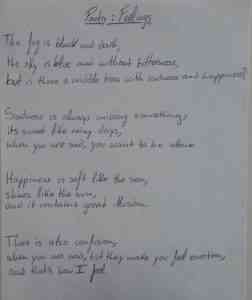 Poetry : Feelings
The fog is black and dark,
the sky is blue and without bitterness,
but is there a middle tone with sadness and happiness?
Sadness is always missing something,
its sweet like rainy days,
when you are sad, you want to be alone.
Happiness is soft like the sea,
shines like the sun,
and it contains great illusion.
There is also confusion,
when you are sad, but they make you feel emotion,
and that's how I feel.